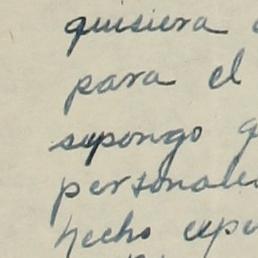 quisiera
para el
supongo
personales
hecho